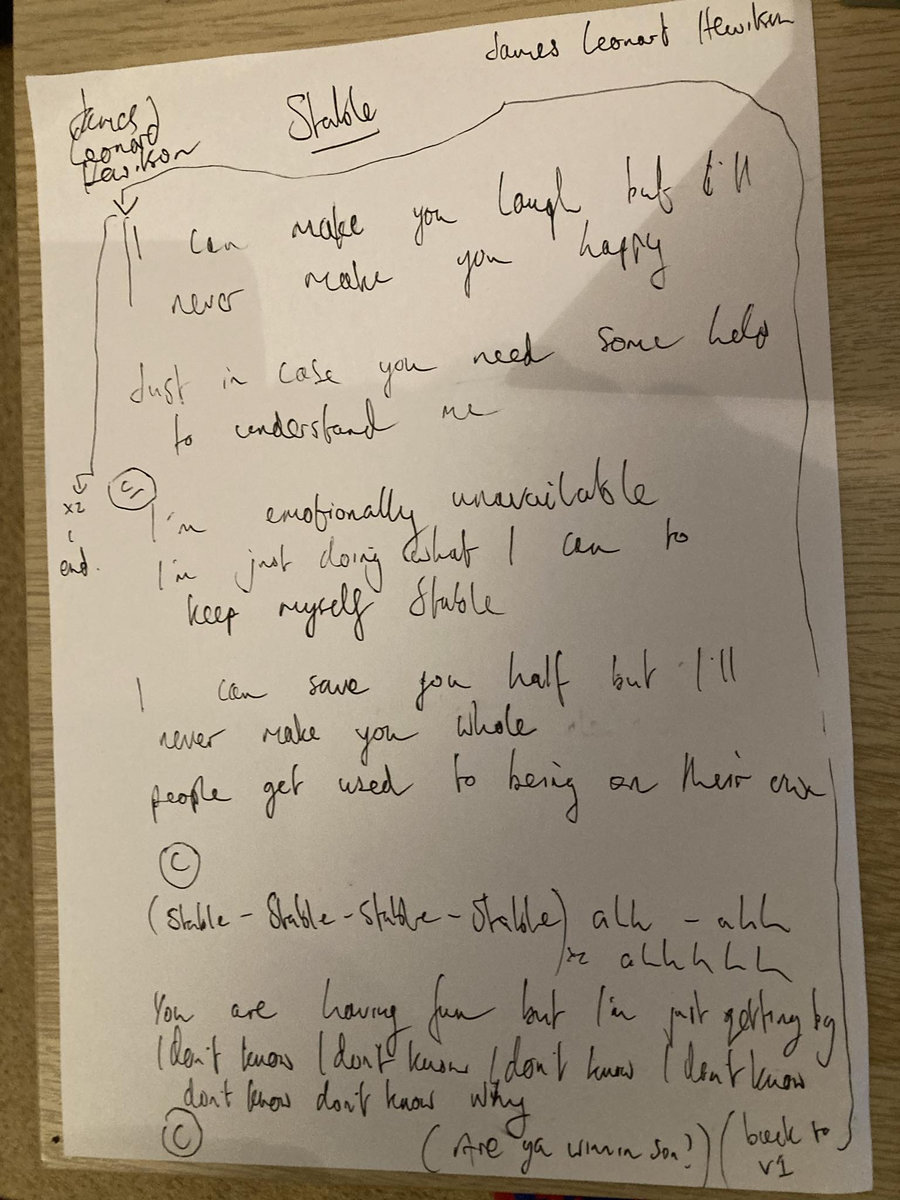 James Leonart Hewikson
James
Leonard
Hewikson
Stable
I can make you laugh but I'll
never make you happy
Just in case you need some help
to understand me
x2
end.
C
I'm emotionally unavailable
I'm just doing what I can to
keep myself stable
I can save you half but I'll
never make you whole
people get used to being on their own
C
(Stable - Stable - Stable - Stable) ahh - ahh
ahhhhh
You are having fun but I'm just getting by
I don't know I don't know I don't know I don't know
don't know don't know why
C
(Are ya winnin son?) (back to
v1